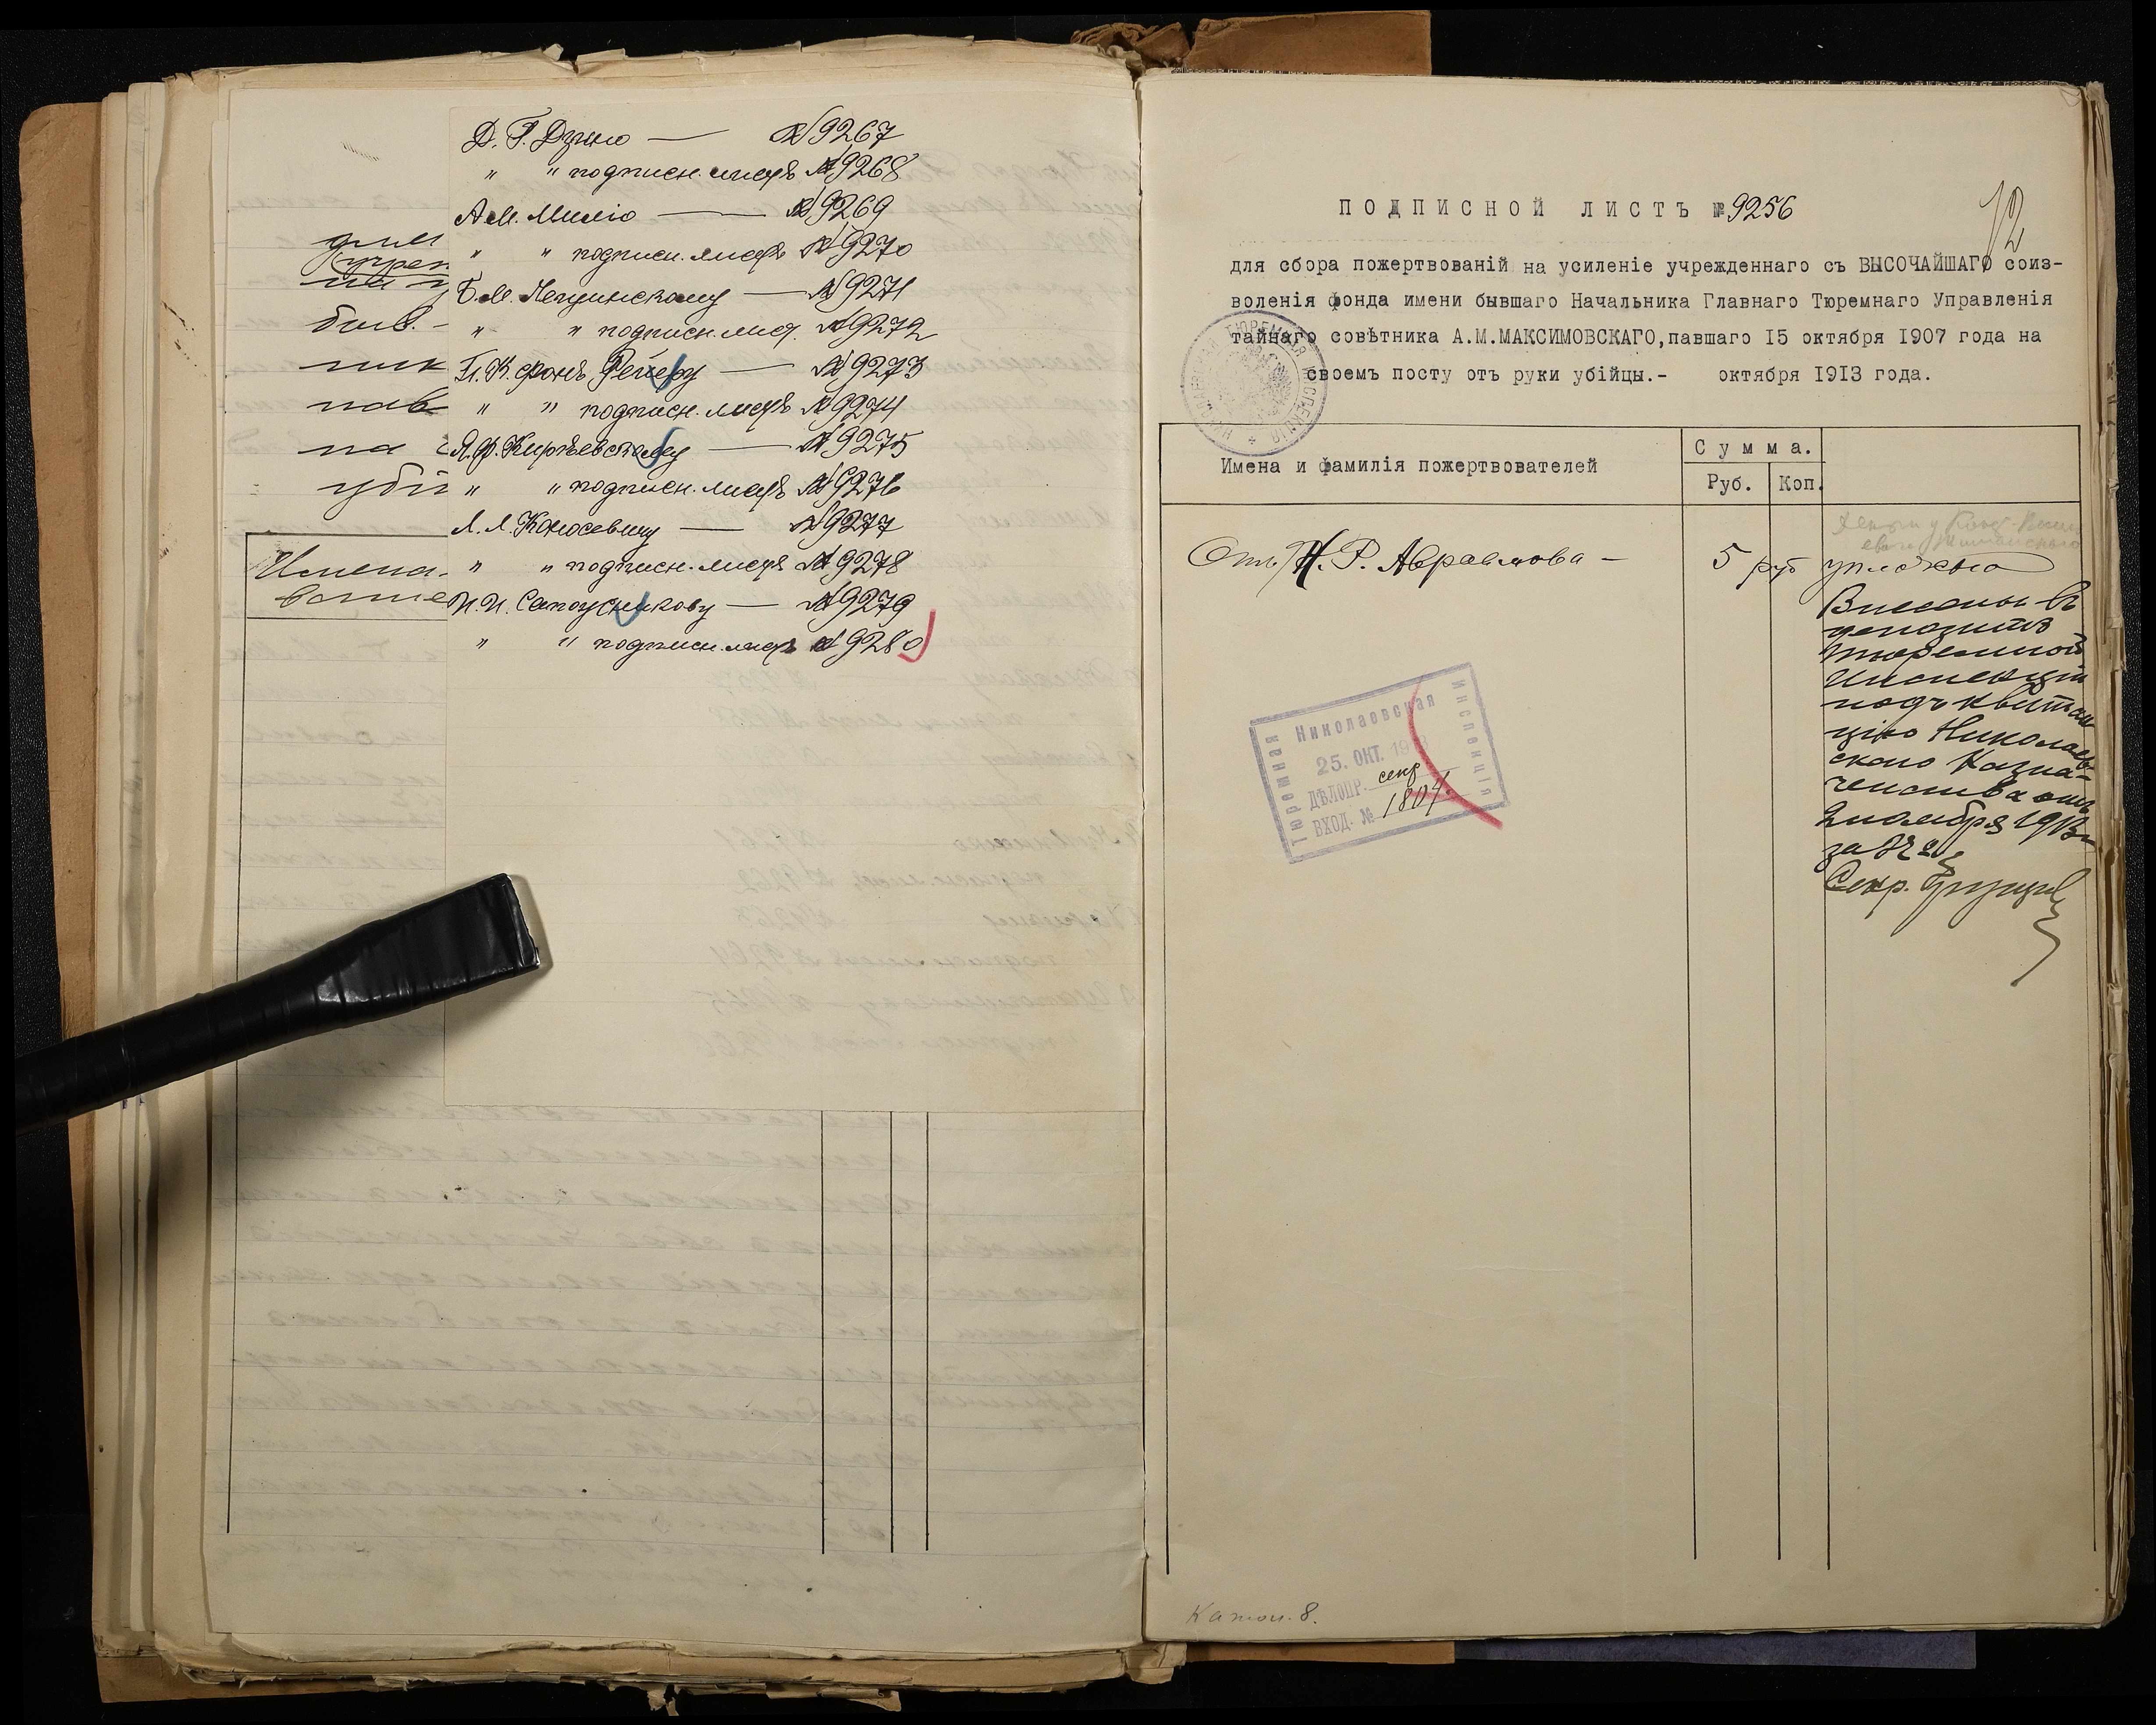 Д. Г. Дунно — №9267
" " подписн. листъ №9268
А. М. Милію — №9269
" " подписн. листъ №9270
Б. М. — №9271
" " подписн. лист. №9272
Г. К. фонъ Рейеру — №9273
" " подписн. листъ №9274
— №9275
" " подписн. листъ №9276
Л. Л. — №9277
" " подписн. листъ №9278
И. И. Сапожникову — №9279
" " подписн. листъ №9280
учреж
на
быв.
ник
пав
на
убій
Имена
ПОДПИСНОЙ ЛИСТЪ №9256
12
для сбора пожертвованій на усиленіе учрежденнаго съ ВЫСОЧАЙШАГО соиз-
воленія фонда имени бывшаго Начальника Главнаго Тюремнаго Управленія
тайнаго совѣтника А.М.МАКСИМОВСКАГО,павшаго 15 октября 1907 года на
своемъ посту отъ руки убійцы.- октября 1913 года.
Имена и фамилія пожертвователей
Сумма.
Руб. Коп.
Отъ Н. Р. Авраамова — 5 руб
уплочено
Внесены въ
депозитъ
тюремной
инспекціи
подъ квитан
цію Николаев
скаго Казна-
чейства отъ
2 ноября 1913 г.
за №
Секр.
Николаевская
Тюремная
Инспекція
25. ОКТ. 191
ДѢЛОПР. секр
ВХОД. № 1804
Катон. 8.